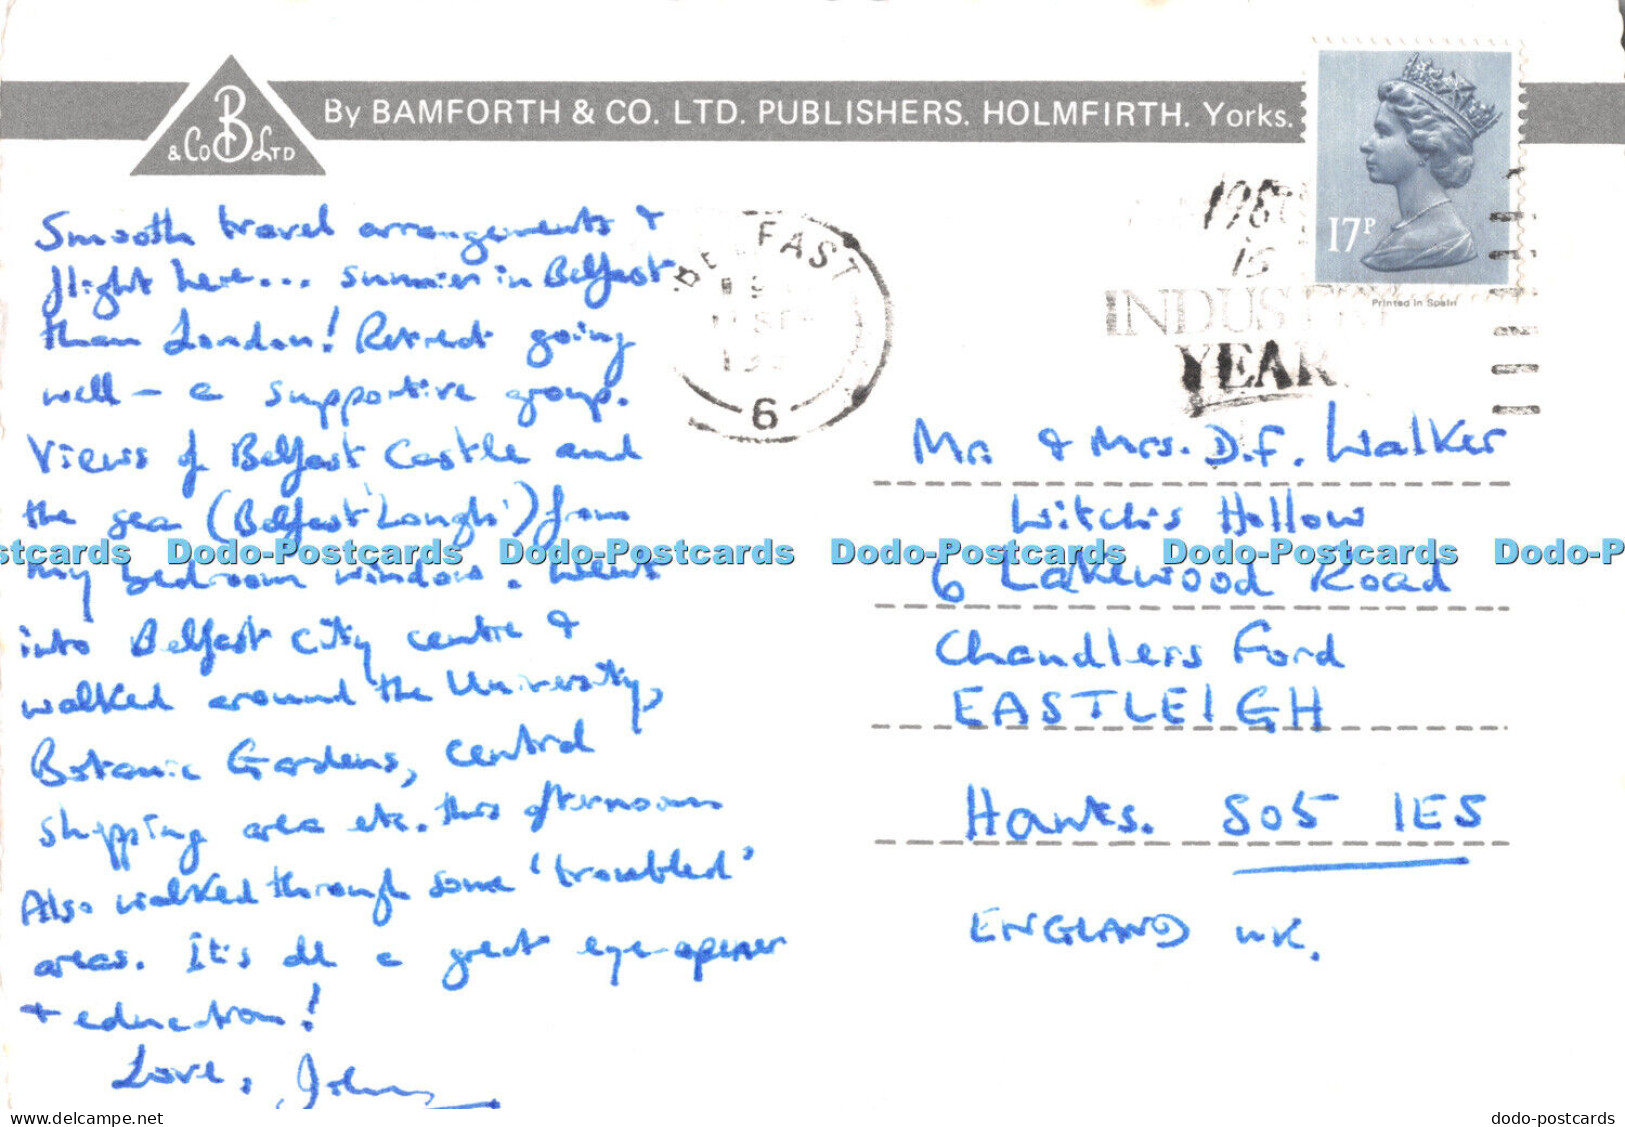 By BAMFORTH & CO. LTD. PUBLISHERS. HOLMFIRTH. Yorks.
B
& Co LTD
17P
Printed in Spain
BELFAST
6
1986
is
INDUSTRY
YEAR
Smooth travel arrangements &
flight here... sunnier in Belfast
than London! Retreat going
well – a supportive group.
Views of Belfast Castle and
the sea (Belfast 'Lough') from
my bedroom window. Went
into Belfast City centre &
walked around the University,
Botanic Gardens, central
shopping area etc. this afternoon
Also walked through some 'troubled'
areas. It's all a great eye-opener
& education!
Love, John
Mr. & Mrs. D.F. Walker
Witch's Hollow
6 Lakewood Road
Chandlers Ford
EASTLEIGH
Hants. SO5 1ES
ENGLAND UK.
stcards Dodo-Postcards Dodo-Postcards Dodo-Postcards Dodo-Postcards Dodo-P
www.delcampe.net
dodo-postcards